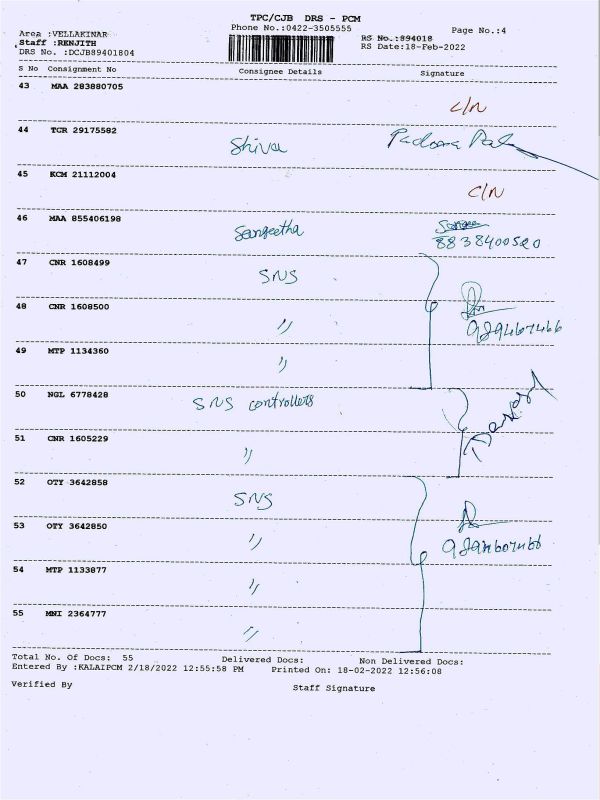 TPC/CJB DRS - PCM
Phone No.:0422-3505555
Page No.:4
Area :VELLAKINAR
Staff :RENJITH
DRS No. :DCJB89401804
RS No.:894018
RS Date:18-Feb-2022
S No Consignment No Consignee Details Signature
43 MAA 283880705 C/N
44 TCR 29175582 Shiva
45 KCM 21112004 C/N
46 MAA 855406198 Sangeetha
8838400520
47 CNR 1608499 SNS
48 CNR 1608500 〃
9894607466
49 MTP 1134360 〃
50 NGL 6778428 SNS controllers
51 CNR 1605229 〃
52 OTY 3642858 SNS
53 OTY 3642850 〃
9894607466
54 MTP 1133877 〃
55 MNI 2364777 〃
Total No. Of Docs: 55 Delivered Docs: Non Delivered Docs:
Entered By :KALAIPCM 2/18/2022 12:55:58 PM Printed On: 18-02-2022 12:56:08
Verified By Staff Signature